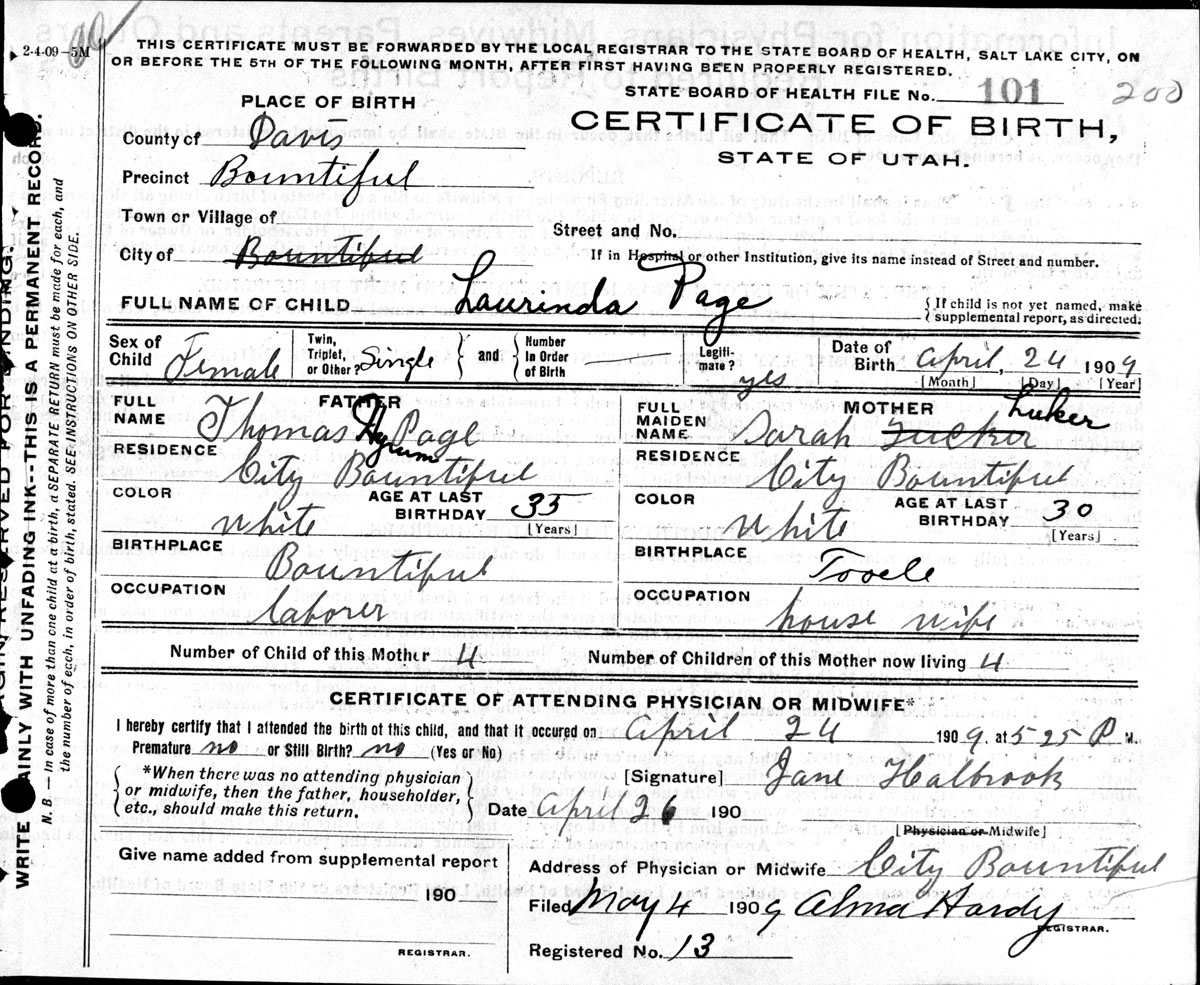 2-4-09-5M
THIS CERTIFICATE MUST BE FORWARDED BY THE LOCAL REGISTRAR TO THE STATE BOARD OF HEALTH, SALT LAKE CITY, ON
OR BEFORE THE 5TH OF THE FOLLOWING MONTH, AFTER FIRST HAVING BEEN PROPERLY REGISTERED.
STATE BOARD OF HEALTH FILE No. 101 200
PLACE OF BIRTH
CERTIFICATE OF BIRTH,
STATE OF UTAH.
County of Davis
Precinct Bountiful
Town or Village of
Street and No.
City of Bountiful
If in Hospital or other Institution, give its name instead of Street and number.
FULL NAME OF CHILD Laurinda Page
{If child is not yet named, make
supplemental report, as directed.
Sex of Child Female
Twin, Triplet, or Other? Single } and { Number In Order of Birth
Legiti-mate? yes
Date of Birth April, 24 1909
[Month] [Day] [Year]
FATHER
FULL NAME Thomas Hyrum Page
RESIDENCE City Bountiful
COLOR White
AGE AT LAST BIRTHDAY 35
[Years]
BIRTHPLACE Bountiful
OCCUPATION laborer
MOTHER
FULL MAIDEN NAME Sarah Tucker Luker
RESIDENCE City Bountiful
COLOR White
AGE AT LAST BIRTHDAY 30
[Years]
BIRTHPLACE Tooele
OCCUPATION house wife
Number of Child of this Mother 4 Number of Children of this Mother now living 4
CERTIFICATE OF ATTENDING PHYSICIAN OR MIDWIFE*
I hereby certify that I attended the birth of this child, and that it occured on April 24 1909. at 5 25 P M.
Premature no or Still Birth? no (Yes or No)
{*When there was no attending physician
or midwife, then the father, householder,
etc., should make this return.}
[Signature] Jane Halbrook
Date April 26 190
[Physician or Midwife]
Give name added from supplemental report
190
REGISTRAR.
Address of Physician or Midwife City Bountiful
Filed May 4 1909 Alma Hardy
REGISTRAR.
Registered No. 13
WRITE AINLY WITH UNFADING INK--THIS IS A PERMANENT RECORD.
N. B. — In case of more than one child at a birth, a SEPARATE RETURN must be made for each, and
the number of each, in order of birth, stated. SEE INSTRUCTIONS ON OTHER SIDE.